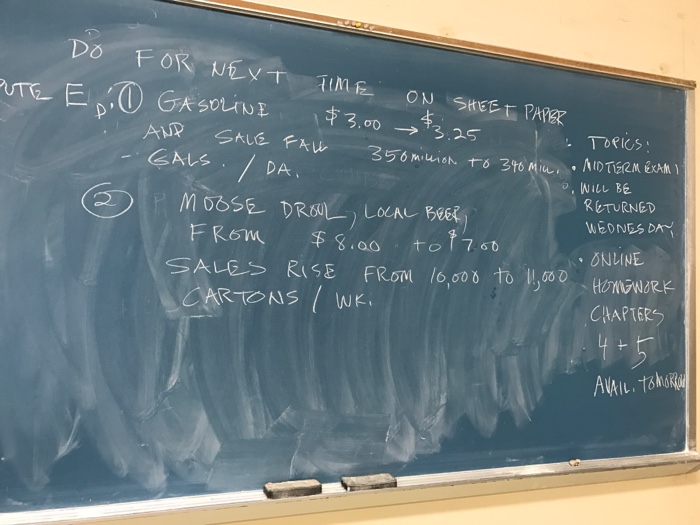 DO FOR NEXT TIME ON SHEET PAPER
PUTE E D: ① GASOLINE $3.00 → $3.25
AND SALE FALL 350 million to 340 Mill.
- GALS. / DA.
② MOOSE DROOL, LOCAL BEER,
FROM $8.00 to $7.00
SALES RISE FROM 10,000 to 11,000
CARTONS / WK.
TOPICS:
• MIDTERM EXAM 1
WILL BE
RETURNED
WEDNESDAY
• ONLINE
HOMEWORK
CHAPTERS
4 + 5
AVAIL. TOMORROW